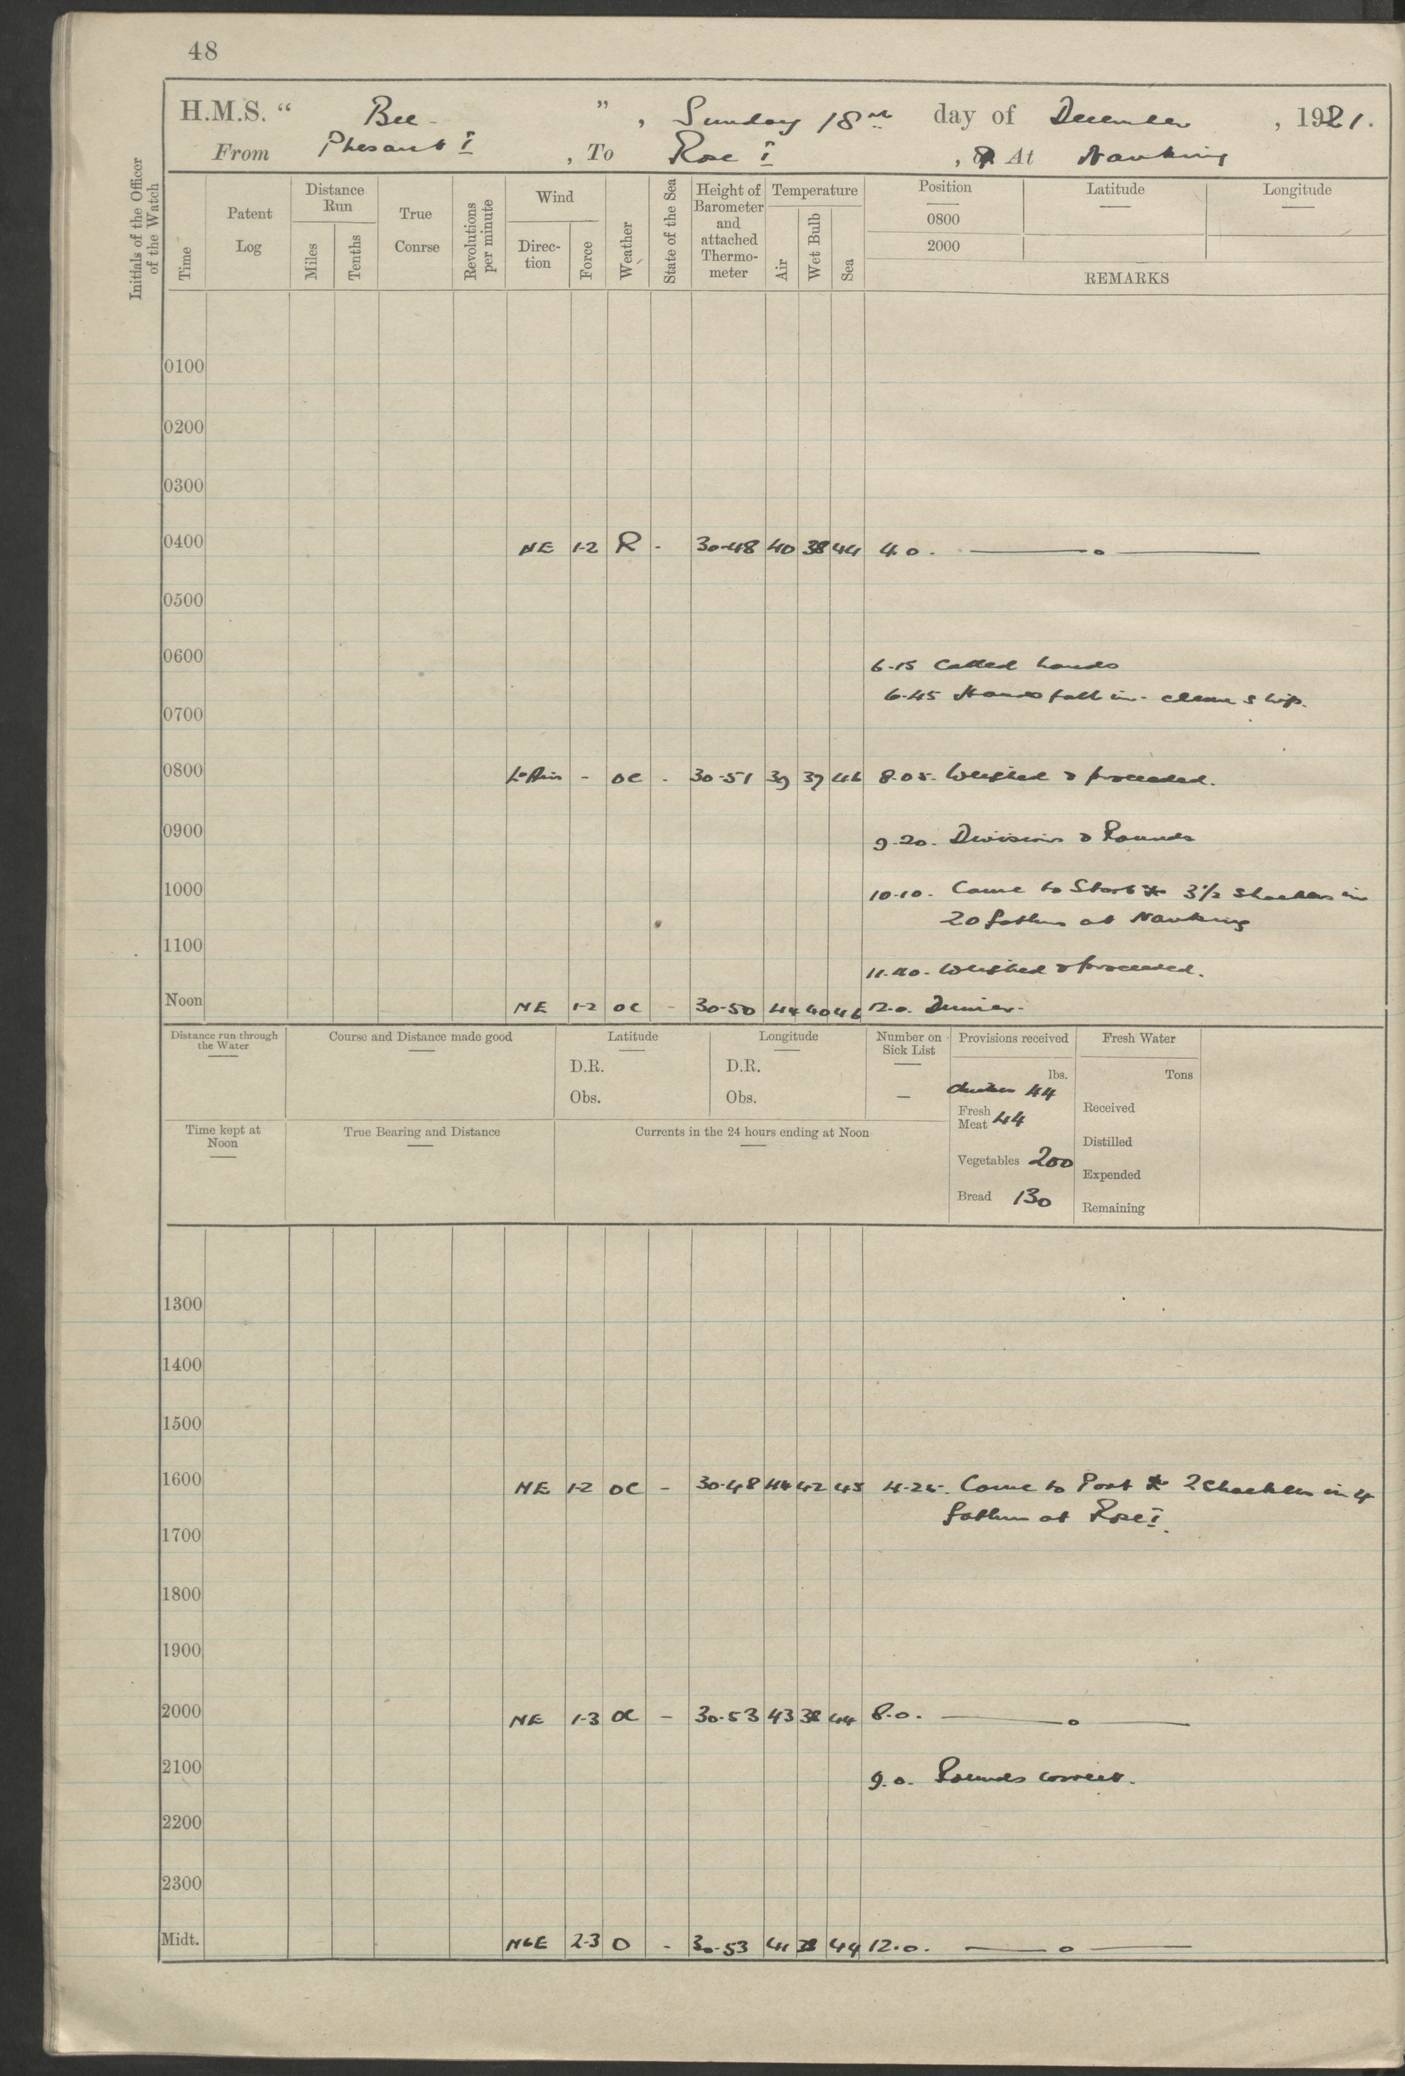 48
H.M.S. “ Bee ” , Sunday 18th day of December , 1921.
From Phesant I , To Rose I , At Nanking
Initials of the Officer of the Watch
Time
Patent Log
Distance Run
Miles
Tenths
True Course
Revolutions per minute
Wind
Direc-tion
Force
Weather
State of the Sea
Height of Barometer and attached Thermo-meter
Temperature
Air
Wet Bulb
Sea
Position
0800
2000
Latitude
Longitude
REMARKS
0100
0200
0300
0400 NE 1-2 R - 30-48 40 38 44 4.0. ——o——
0500
0600
6-15 Called hands
6-45 Hands fall in - clean ship.
0700
0800 Lt Airs - OC - 30-51 39 37 46 8-05. Weighed & proceeded.
0900
9-20. Divisions & Rounds
1000
10-10. Came to Starb 3½ shackles in
20 fathms at Nanking
1100
11-40. Weighed & proceeded.
Noon NE 1-2 OC - 30-50 44 40 46 12.0. Dinner.
Distance run through the Water
Course and Distance made good
Latitude
D.R.
Obs.
Longitude
D.R.
Obs.
Number on Sick List
-
Provisions received
lbs.
44
Fresh Meat 44
Vegetables 200
Bread 130
Fresh Water
Tons
Received
Distilled
Expended
Remaining
Time kept at Noon
True Bearing and Distance
Currents in the 24 hours ending at Noon
1300
1400
1500
1600 NE 1-2 OC - 30-48 44 42 45 4-25. Came to Port 2 shackles in 4
fathms at Rose I.
1700
1800
1900
2000 NE 1-3 OC - 30-53 43 38 44 8.0. ——o——
2100
9.0. Rounds correct.
2200
2300
Midt. NbE 2-3 O - 30-53 41 38 44 12.0. ——o——